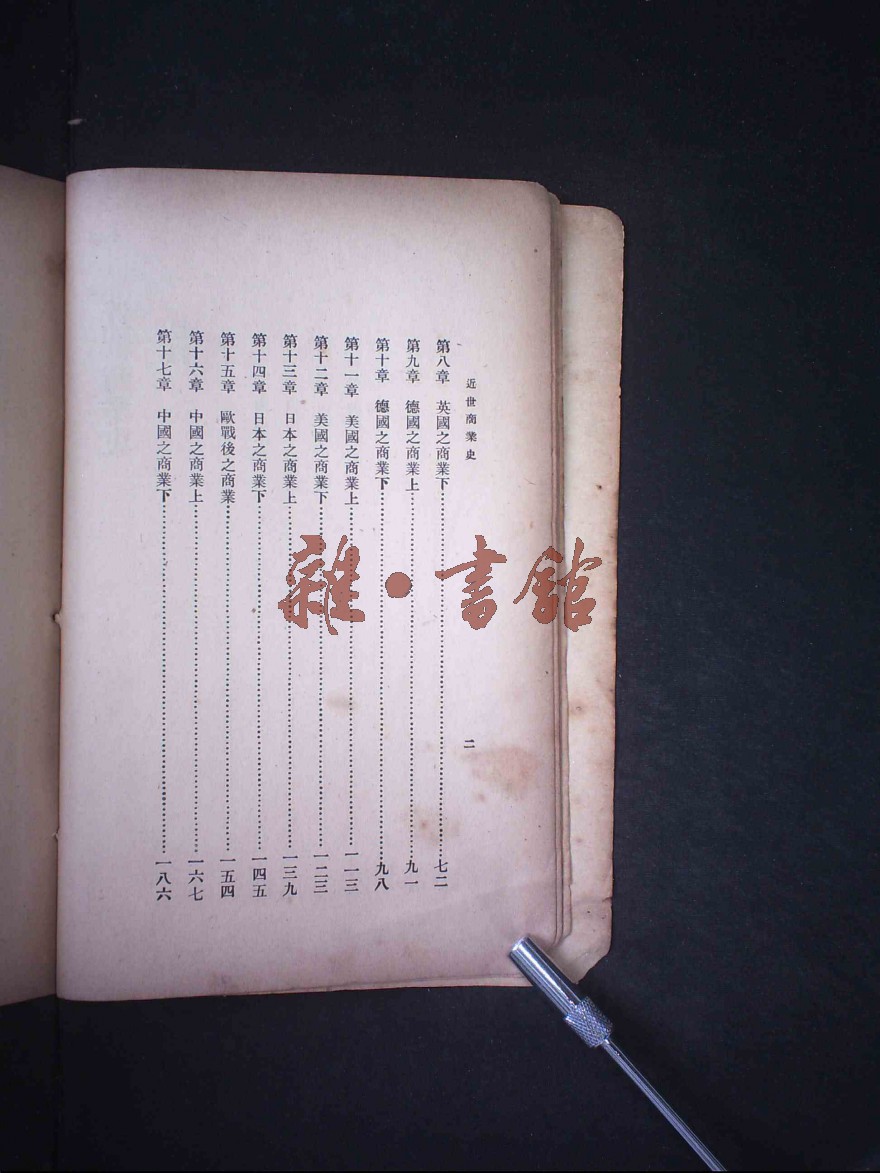 近世商業史
二
第八章 英國之商業下……七二
第九章 德國之商業上……九一
第十章 德國之商業下……九八
第十一章 美國之商業上……一一三
第十二章 美國之商業下……一二三
第十三章 日本之商業上……一三九
第十四章 日本之商業下……一四五
第十五章 歐戰後之商業……一五四
第十六章 中國之商業上……一六七
第十七章 中國之商業下……一八六
雜·書館